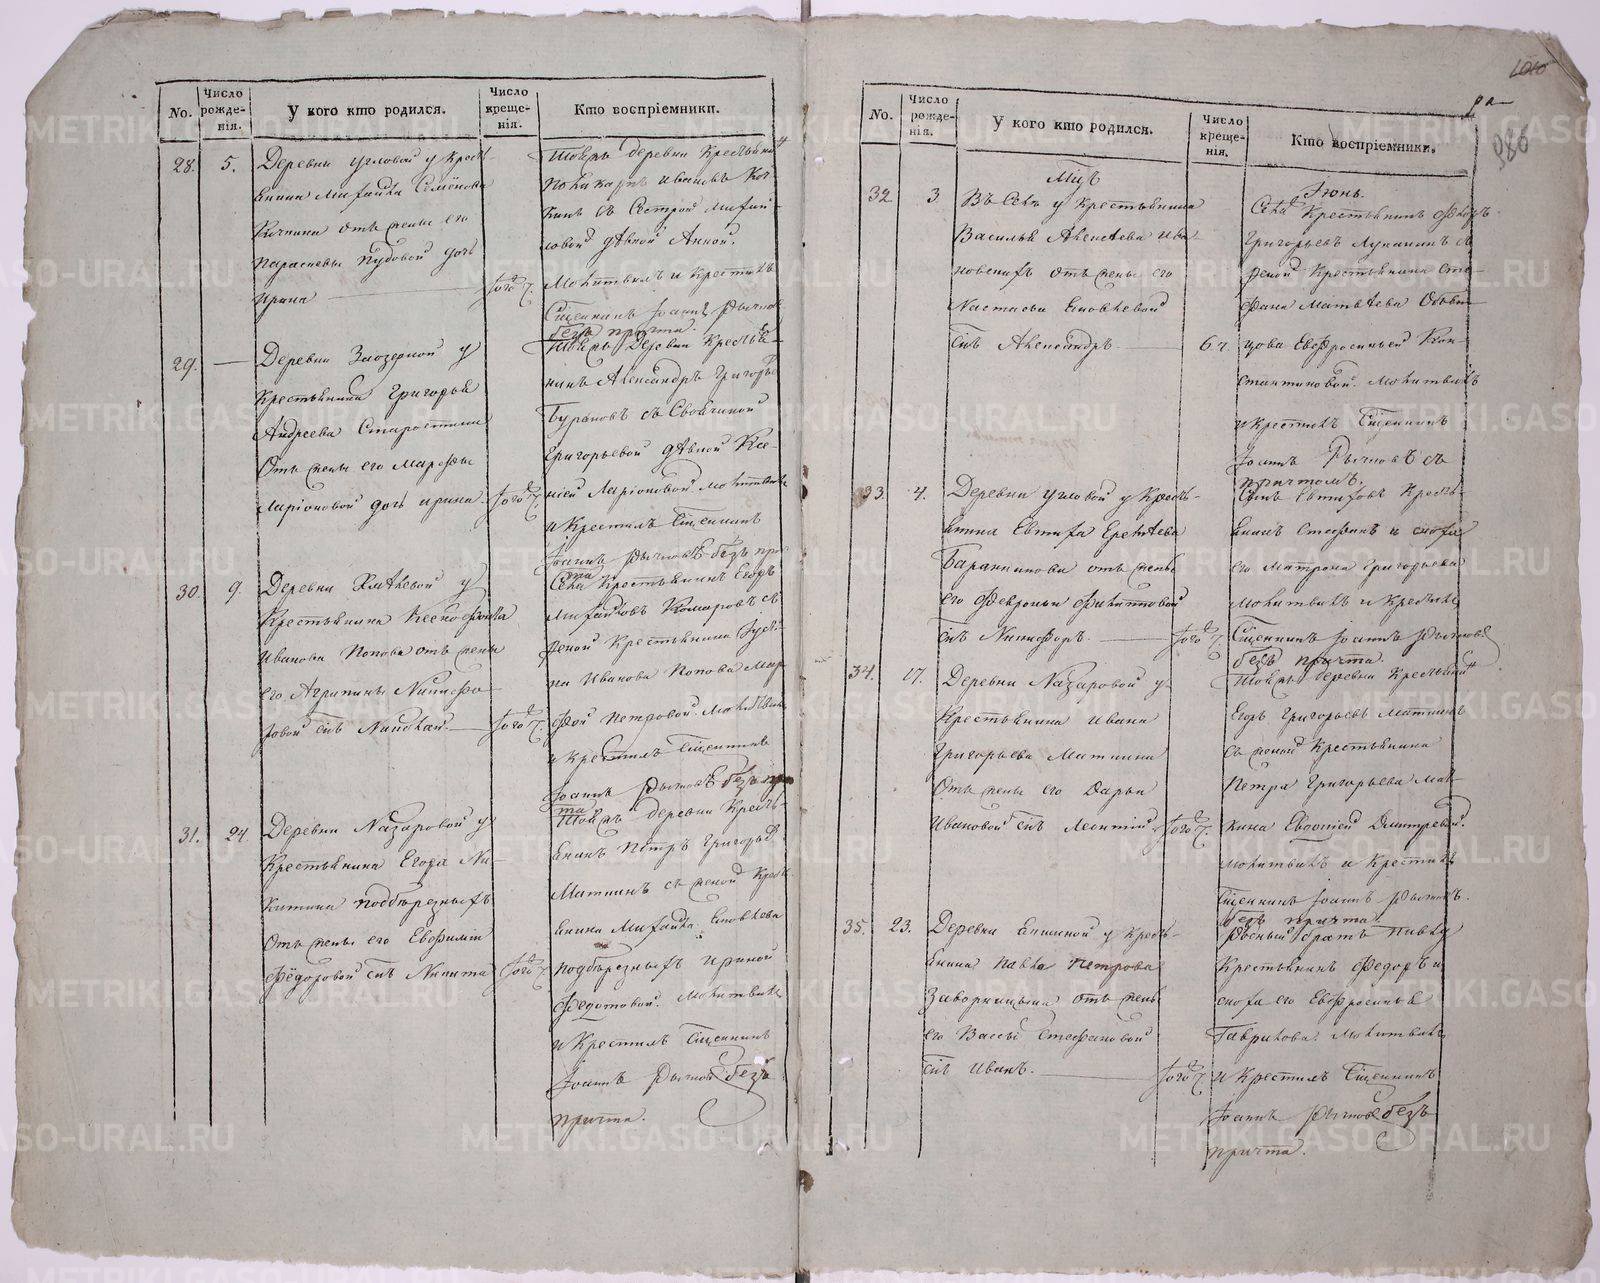 No.
Число рожде- нія.
У кого кто родился.
Число креще- нія.
Кто воспріемники.
28.
5.
Деревни Угловой у Кресть-
янина Михайла Семёнова
Кочкина отъ жены его
Парасковьи Пудовой дочь
Ирина
того 7.
Тойжъ деревни Крестьянинъ
Поликарпъ Ивановъ Коч-
кинъ съ Сестрой Михай-
ловой дѣвкой Анной.
Молитвилъ и Крестилъ
Священникъ Іоаннъ
безъ причта.
29.
Деревни Заозерной у
Крестьянина Григорья
Андреева Старостина
Отъ жены его Марѳы
Ларіоновой дочь Ирина
того 7.
Тойжъ Деревни Крестья-
нинъ Александръ Григорьевъ
Бурановъ съ
Григорьевой дѣвкой Ксе-
ніей Ларіоновой. Молитвилъ
и Крестилъ Священникъ
Іоаннъ безъ при-
чта
30.
9.
Деревни у
Крестьянина Ксенофонта
Иванова Попова отъ жены
его Агрипины Никифо-
ровой сынъ Николай.
того 7.
Села Крестьянинъ Егоръ
Михайловъ Комаровъ съ
женой Крестьянина
на Иванова Попова Мар-
фой Петровой. Молитвилъ
и Крестилъ Священникъ
Іоаннъ безъ при-
чта
31.
24
Деревни Назаровой у
Крестьянина Егора Ни-
китина Подберезныхъ
Отъ жены его Евфиміи
Фёдоровой сынъ Никита
того 7.
Тойжъ деревни Кресть-
янинъ Петръ Григорьевъ
Маткинъ съ женой Кресть-
янина Михайла Яковлева
Подберезныхъ Ириной
Федотовой. Молитвилъ
и Крестилъ Священникъ
Іоаннъ безъ
причта.
1010
986
No.
Число рожде- нія.
У кого кто родился.
Число креще- нія.
Кто воспріемники.
Мцъ
Іюнь.
32.
3.
Въ Селѣ у Крестьянина
Василья Алексѣева Ива-
новскихъ отъ жены его
Настасьи Яковлевой
сынъ Александръ
6.
Села Крестьянинъ Фёдоръ
Григорьевъ Лукинъ съ
женой Крестьянина Сте-
фана Матвѣева
цова Евфросиньей Кон-
стантиновой. Молитвилъ
и Крестилъ Священникъ
Іоаннъ съ
причтомъ.
33.
4.
Деревни Угловой у Кресть-
янина Евтифа Еремѣева
Баранникова отъ жены
его Февроньи Филипповой
сынъ Никифоръ.
того 7.
Сынъ Евтифовъ Кресть-
янинъ Стефанъ и сноха
его Матрона Григорьева
Молитвилъ и Крестилъ
Священникъ Іоаннъ
безъ причта.
34.
17.
Деревни Назаровой у
Крестьянина Ивана
Григорьева Маткина
Отъ жены его Дарьи
Ивановой сынъ Леонтій
того 7.
Тойжъ деревни Крестьянинъ
Егоръ Григорьевъ Маткинъ
съ женой Крестьянина
Петра Григорьева Мат-
кина Евдокіей Дмитревой.
Молитвилъ и Крестилъ
Священникъ Іоаннъ
безъ причта.
35.
23.
Деревни у Кресть-
янина Павла Петрова
Заворницына отъ жены
его Вассы Стефановой
сынъ Иванъ.
того 7.
Родный братъ Павла
Крестьянинъ Федоръ и
сноха его Евфросинья
Гаврилова. Молитвилъ
и Крестилъ Священникъ
Іоаннъ безъ
причта.
METRIKI.GASO-URAL.RU